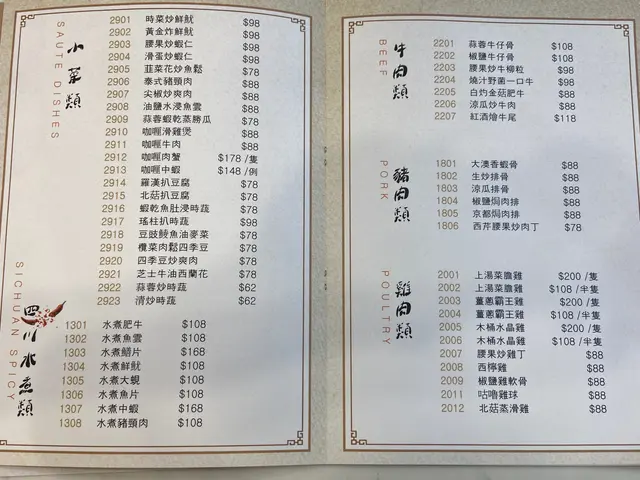 小菜類
SAUTE DISHES
2901 時菜炒鮮魷 $98
2902 黃金炸鮮魷 $98
2903 腰果炒蝦仁 $98
2904 滑蛋炒蝦仁 $98
2905 韮菜花炒魚鬆 $78
2906 泰式豬頸肉 $88
2907 尖椒炒爽肉 $88
2908 油鹽水浸魚雲 $88
2909 蒜蓉蝦乾蒸勝瓜 $78
2910 咖喱滑雞煲 $88
2911 咖喱牛肉 $88
2912 咖喱肉蟹 $178 /隻
2913 咖喱中蝦 $148 /例
2914 羅漢扒豆腐 $78
2915 北菇扒豆腐 $78
2916 蝦乾魚肚浸時蔬 $78
2917 瑤柱扒時蔬 $98
2918 豆豉鯪魚油麥菜 $78
2919 欖菜肉鬆四季豆 $78
2920 四季豆炒爽肉 $78
2921 芝士牛油西蘭花 $78
2922 蒜蓉炒時蔬 $62
2923 清炒時蔬 $62
四川水煮類
SICHUAN SPICY
1301 水煮肥牛 $108
1302 水煮魚雲 $108
1303 水煮鯃片 $168
1304 水煮鮮魷 $108
1305 水煮大蜆 $108
1306 水煮魚片 $108
1307 水煮中蝦 $168
1308 水煮豬頸肉 $108
牛肉類
BEEF
2201 蒜蓉牛仔骨 $108
2202 椒鹽牛仔骨 $108
2203 腰果炒牛柳粒 $98
2204 燒汁野菌一口牛 $98
2205 白灼金菇肥牛 $88
2206 涼瓜炒牛肉 $88
2207 紅酒燴牛尾 $118
豬肉類
PORK
1801 大澳香蝦骨 $88
1802 生炒排骨 $88
1803 涼瓜排骨 $88
1804 椒鹽焗肉排 $88
1805 京都焗肉排 $88
1806 西芹腰果炒肉丁 $78
雞肉類
POULTRY
2001 上湯菜膽雞 $200 /隻
2002 上湯菜膽雞 $108 /半隻
2003 薑蔥霸王雞 $200 /隻
2004 薑蔥霸王雞 $108 /半隻
2005 木桶水晶雞 $200 /隻
2006 木桶水晶雞 $108 /半隻
2007 腰果炒雞丁 $88
2008 西檸雞 $88
2009 椒鹽雞軟骨 $88
2011 咕嚕雞球 $88
2012 北菇蒸滑雞 $88